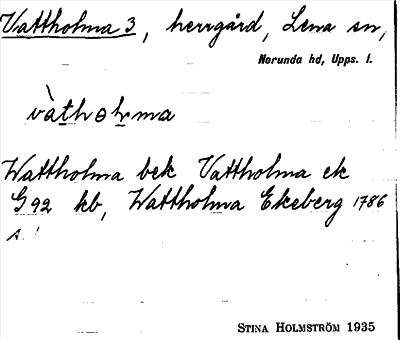 Vattholma 3, herrgård, Lena sn,
Norunda hd, Upps. l.
vàtholma
Wattholma bek Vattholma ek
G 92 kb, Wattholma Ekeberg 1786
STINA HOLMSTRÖM 1935